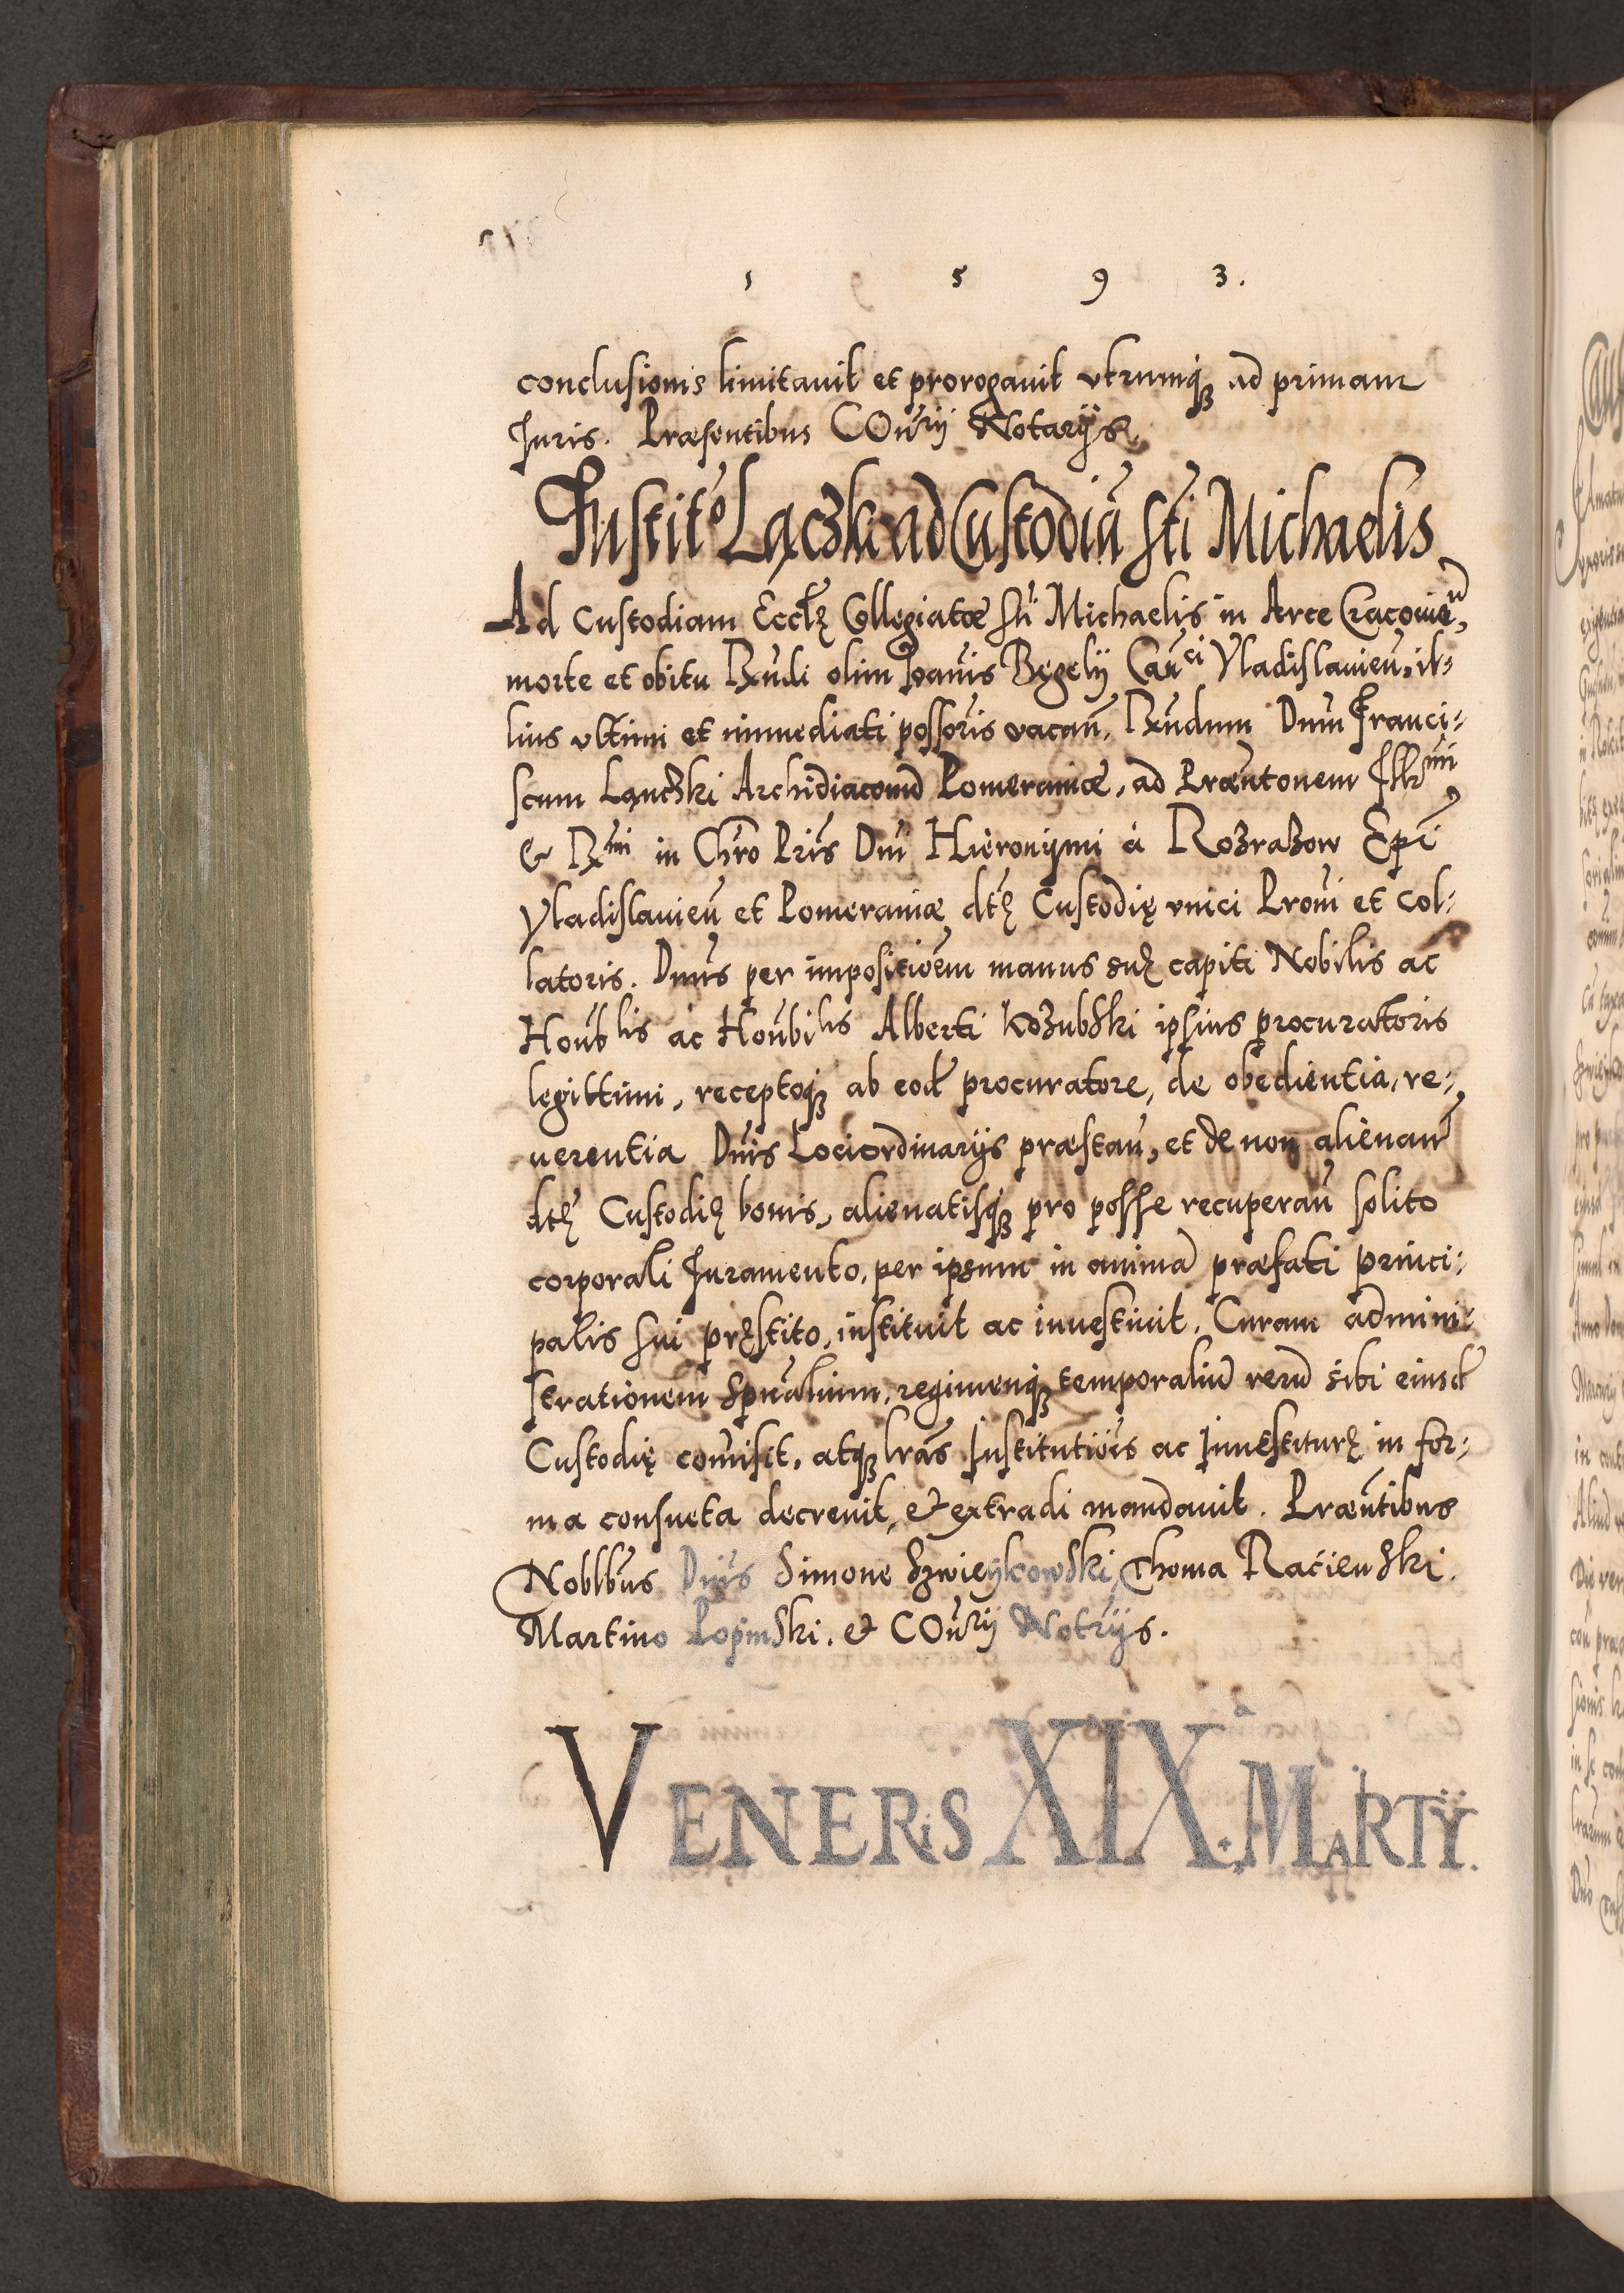 1 5 9 3.
conclusionis limitauit et prorogauit vtrumq́ꝫ ad primam
Iuris. Præsentibus COńrij Notarijs.
Instito Łączki ad Custodiā sti Michaelis
Ad Custodiam Eccłę Collegiatæ sti Michaelis in Arce Cracouien̄,
morte et obitu Rn̄di olim Joan̄is Begelij Can̄ci Vladislauien̄, il-
lius vltimi et immediati possōris vacan̄, Rn̄dum Dn̄m Franci-
scum Łączki Archidiaconū Pomeraniæ, ad Præn̄tonem Illrmi
& Rmi in Chr̄o Pr̄is Dn̄i Hieronijmi à Rozrażow Ep̄i
Vladislauien̄ et Pomeraniæ dtę Custodię vnici Pron̄i et col-
latoris. Dn̄us per impositiōem manus suę capiti Nobilis ac
Hon̄blis ac Hon̄bilis Alberti Kozubski ipsius procuratoris
legittimi, receptoq́ꝫ ab eod̄ procuratore, de obedientia, re-
uerentia Dn̄is Lociordinarijs præstan̄, et de non alienan̄
dtę Custodię bonis, alienatisq́ꝫ pro posse recuperan̄ solito
corporali Iuramento, per ipsum in animā præfati princi-
palis sui pręstito, instituit ac inuestiuit. Curam admini-
strationem Spūalium, regimenq́ꝫ temporaliū rerū sibi eiusd̄
Custodię com̄isit, atqꝫ lr̄as Institutiōis ac Inuestiturę in for-
ma consueta decreuit, & extradi mandauit. Præn̄tibus
Noblbus Dn̄is Simone Szwieykowski, Thoma Racienski.
Martino Łopinski. & COńrij Notr̄ijs.
VENERIS XIXa. MARTIJ.